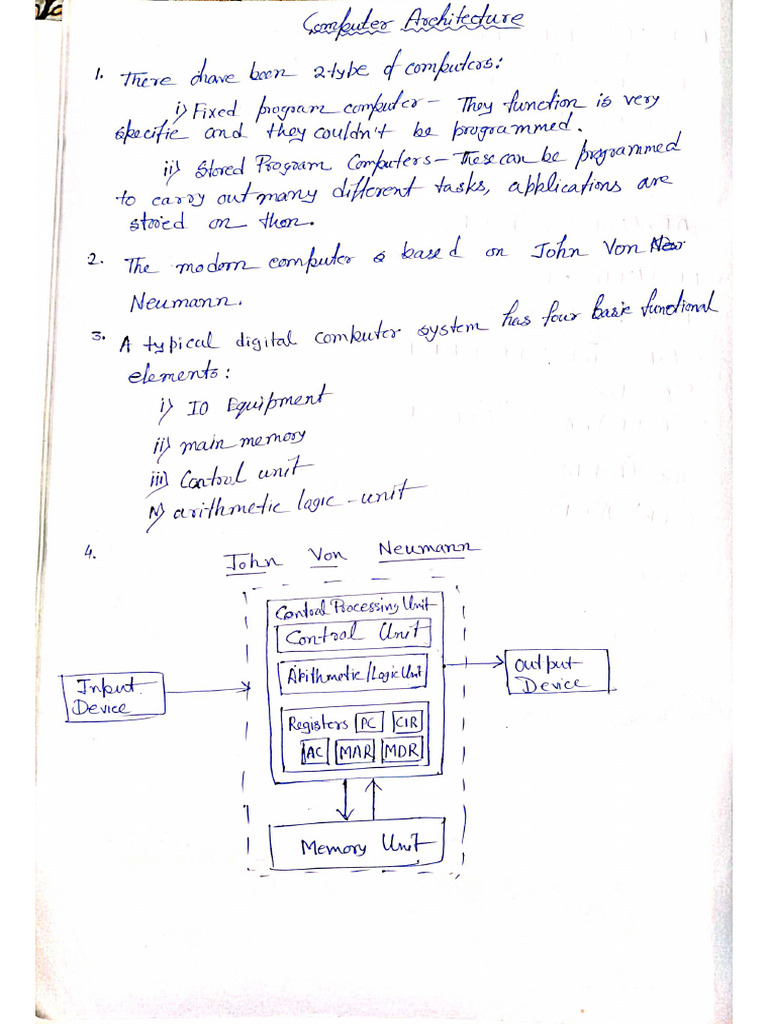 Computer Architecture
1. There have been 2 type of computers:
i) Fixed program computer - They function is very
specific and they couldn't be programmed.
ii) Stored Program Computers - These can be programmed
to carry out many different tasks, applications are
stored on them.
2. The modern computer is based on John Von
Neumann.
3. A typical digital computer system has four basic functional
elements:
i) IO Equipment
ii) main memory
iii) Control unit
iv) arithmetic logic - unit
4. John Von Neumann
Central Processing Unit
Control Unit
Input Device
Arithmetic/Logic Unit
Output Device
Registers PC CIR
AC MAR MDR
Memory Unit